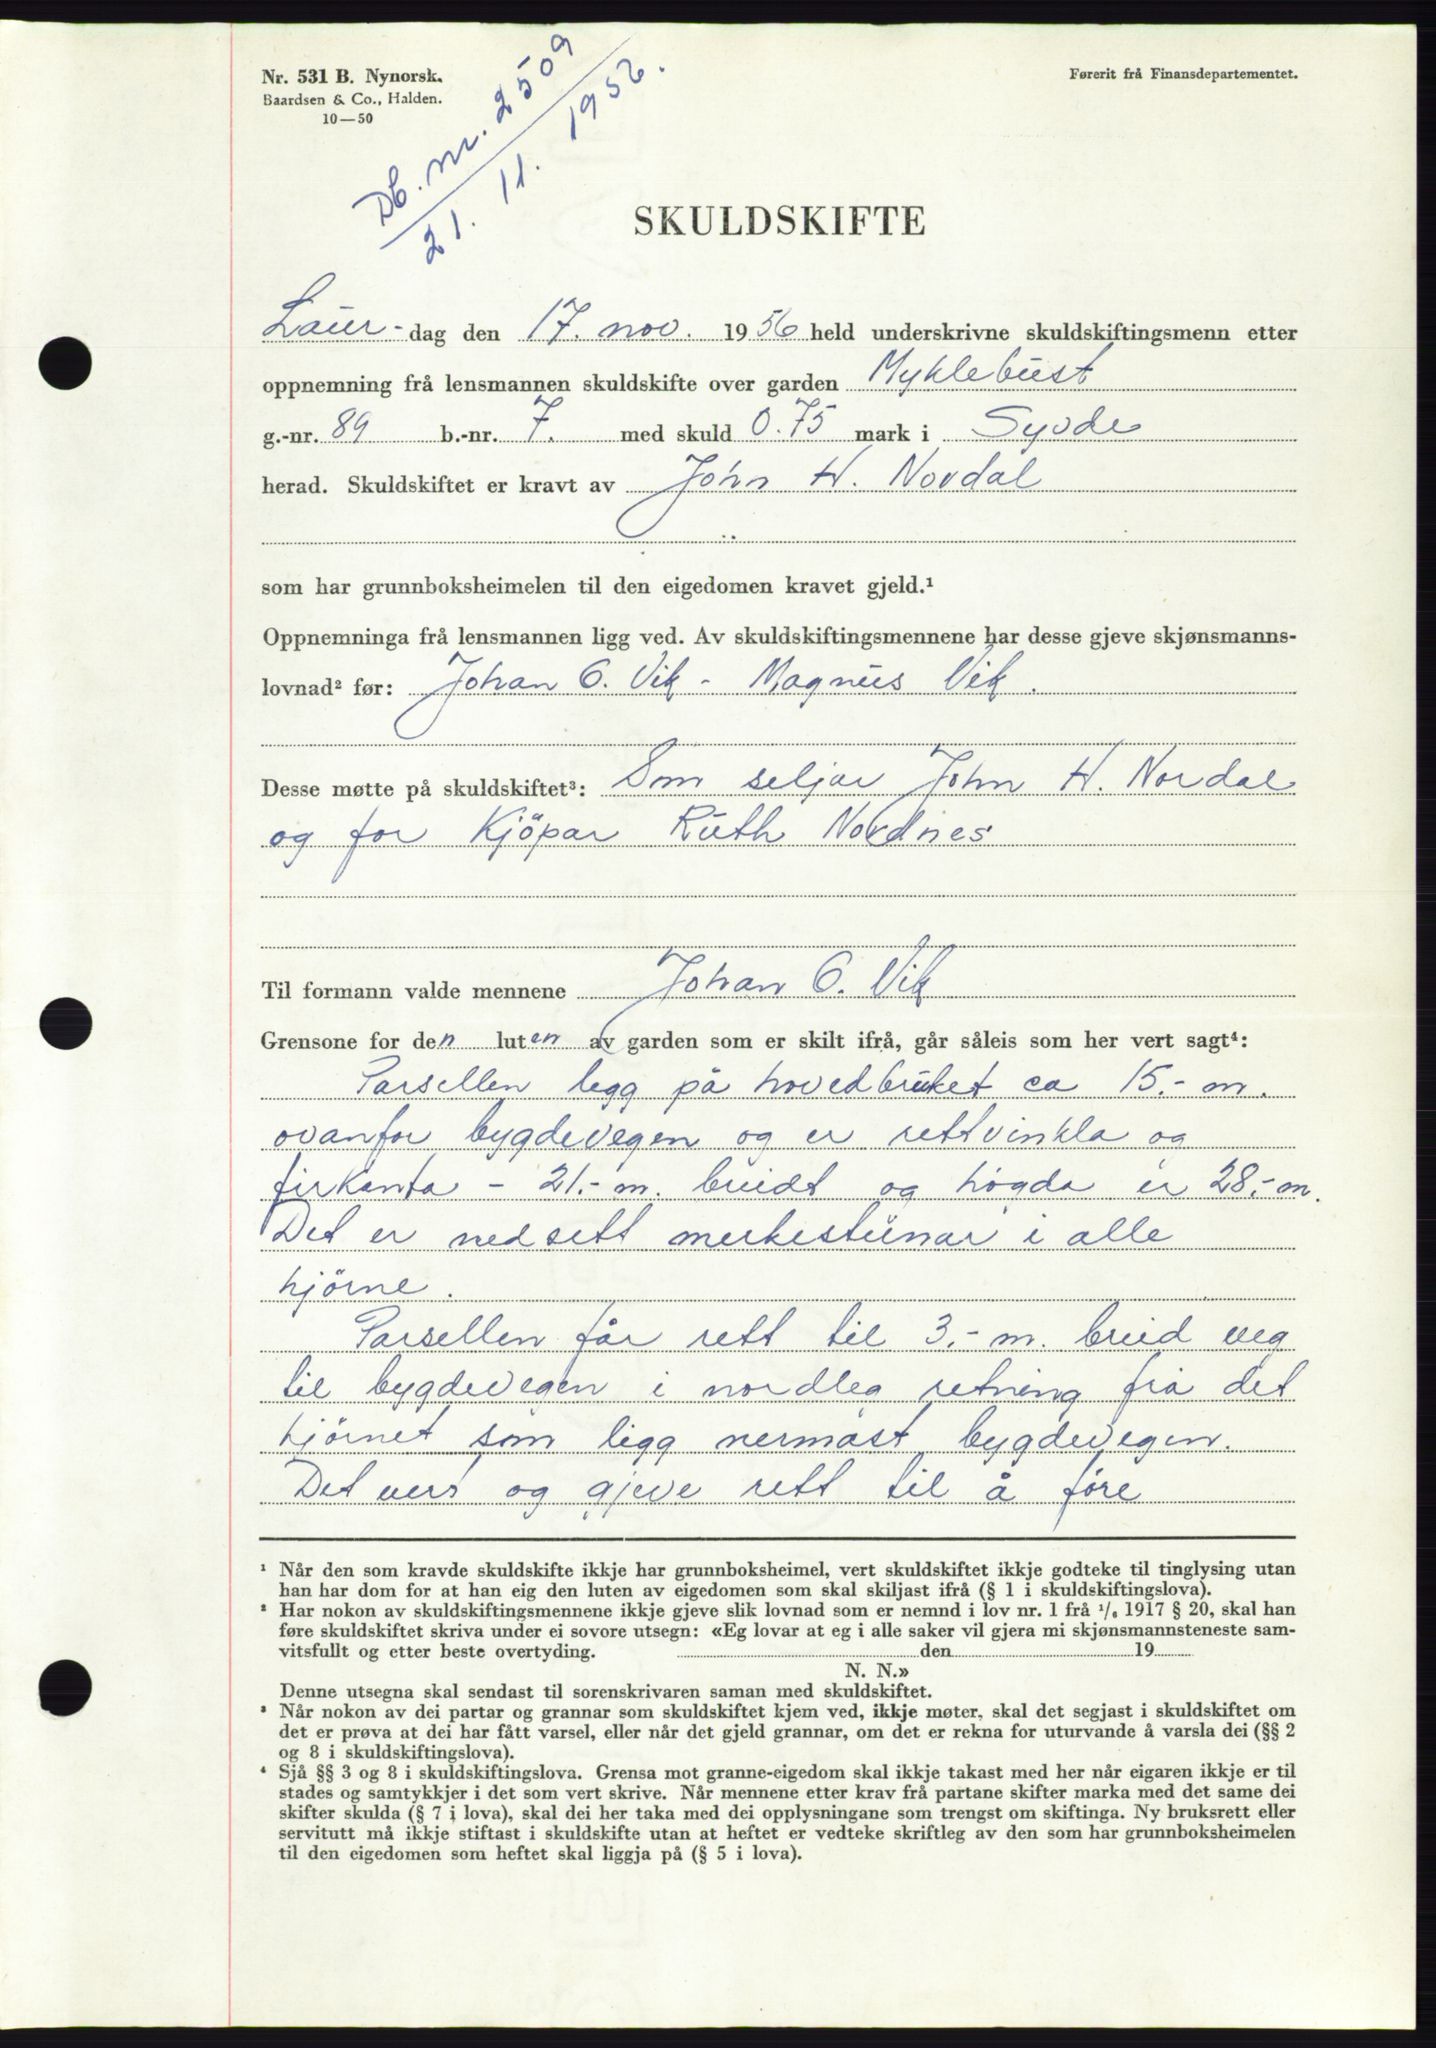 Nr. 531 B. Nynorsk.
Baardsen & Co., Halden.
10—50
Db. nr. 2509
21. 11. 1956.
Førerit frå Finansdepartementet.
SKULDSKIFTE
Laur-dag den 17. nov. 1956 held underskrivne skuldskiftingsmenn etter
oppnemning frå lensmannen skuldskifte over garden Myklebust
g.-nr. 89 b.-nr. 7. med skuld 0.75 mark i Syvde
herad. Skuldskiftet er kravt av John H. Nordal
som har grunnboksheimelen til den eigedomen kravet gjeld.¹
Oppnemninga frå lensmannen ligg ved. Av skuldskiftingsmennene har desse gjeve skjønsmanns-
lovnad² før: Johan O. Vik - Magnus Vik.
Desse møtte på skuldskiftet³: Som seljar John H. Nordal
og for Kjöpar Ruth Nordnes
Til formann valde mennene Johan O. Vik
Grensone for den luten av garden som er skilt ifrå, går såleis som her vert sagt⁴:
Parsellen legg på hovedbruket ca 15.- m.
ovanfor bygdevegen og er rettvinkla og
firkanta - 21.- m. breidt og høgda er 28.- m.
Det er nedsett merkesteinar i alle
hjörne.
Parsellen får rett til 3.- m. breid veg
til bygdevegen i nordleg retning frå det
hjörnet som ligg nermast bygdevegen.
Det vert og gjeve rett til å före
¹ Når den som kravde skuldskifte ikkje har grunnboksheimel, vert skuldskiftet ikkje godteke til tinglysing utan
han har dom for at han eig den luten av eigedomen som skal skiljast ifrå (§ 1 i skuldskiftingslova).
² Har nokon av skuldskiftingsmennene ikkje gjeve slik lovnad som er nemnd i lov nr. 1 frå ¹/₆ 1917 § 20, skal han
føre skuldskiftet skriva under ei sovore utsegn: «Eg lovar at eg i alle saker vil gjera mi skjønsmannsteneste sam-
vitsfullt og etter beste overtyding. den 19
N. N.»
Denne utsegna skal sendast til sorenskrivaren saman med skuldskiftet.
³ Når nokon av dei partar og grannar som skuldskiftet kjem ved, ikkje møter, skal det segjast i skuldskiftet om
det er prøva at dei har fått varsel, eller når det gjeld grannar, om det er rekna for uturvande å varsla dei (§§ 2
og 8 i skuldskiftingslova).
⁴ Sjå §§ 3 og 8 i skuldskiftingslova. Grensa mot granne-eigedom skal ikkje takast med her når eigaren ikkje er til
stades og samtykkjer i det som vert skrive. Når mennene etter krav frå partane skifter marka med det same dei
skifter skulda (§ 7 i lova), skal dei her taka med dei opplysningane som trengst om skiftinga. Ny bruksrett eller
servitutt må ikkje stiftast i skuldskifte utan at heftet er vedteke skriftleg av den som har grunnboksheimelen
til den eigedomen som heftet skal liggja på (§ 5 i lova).